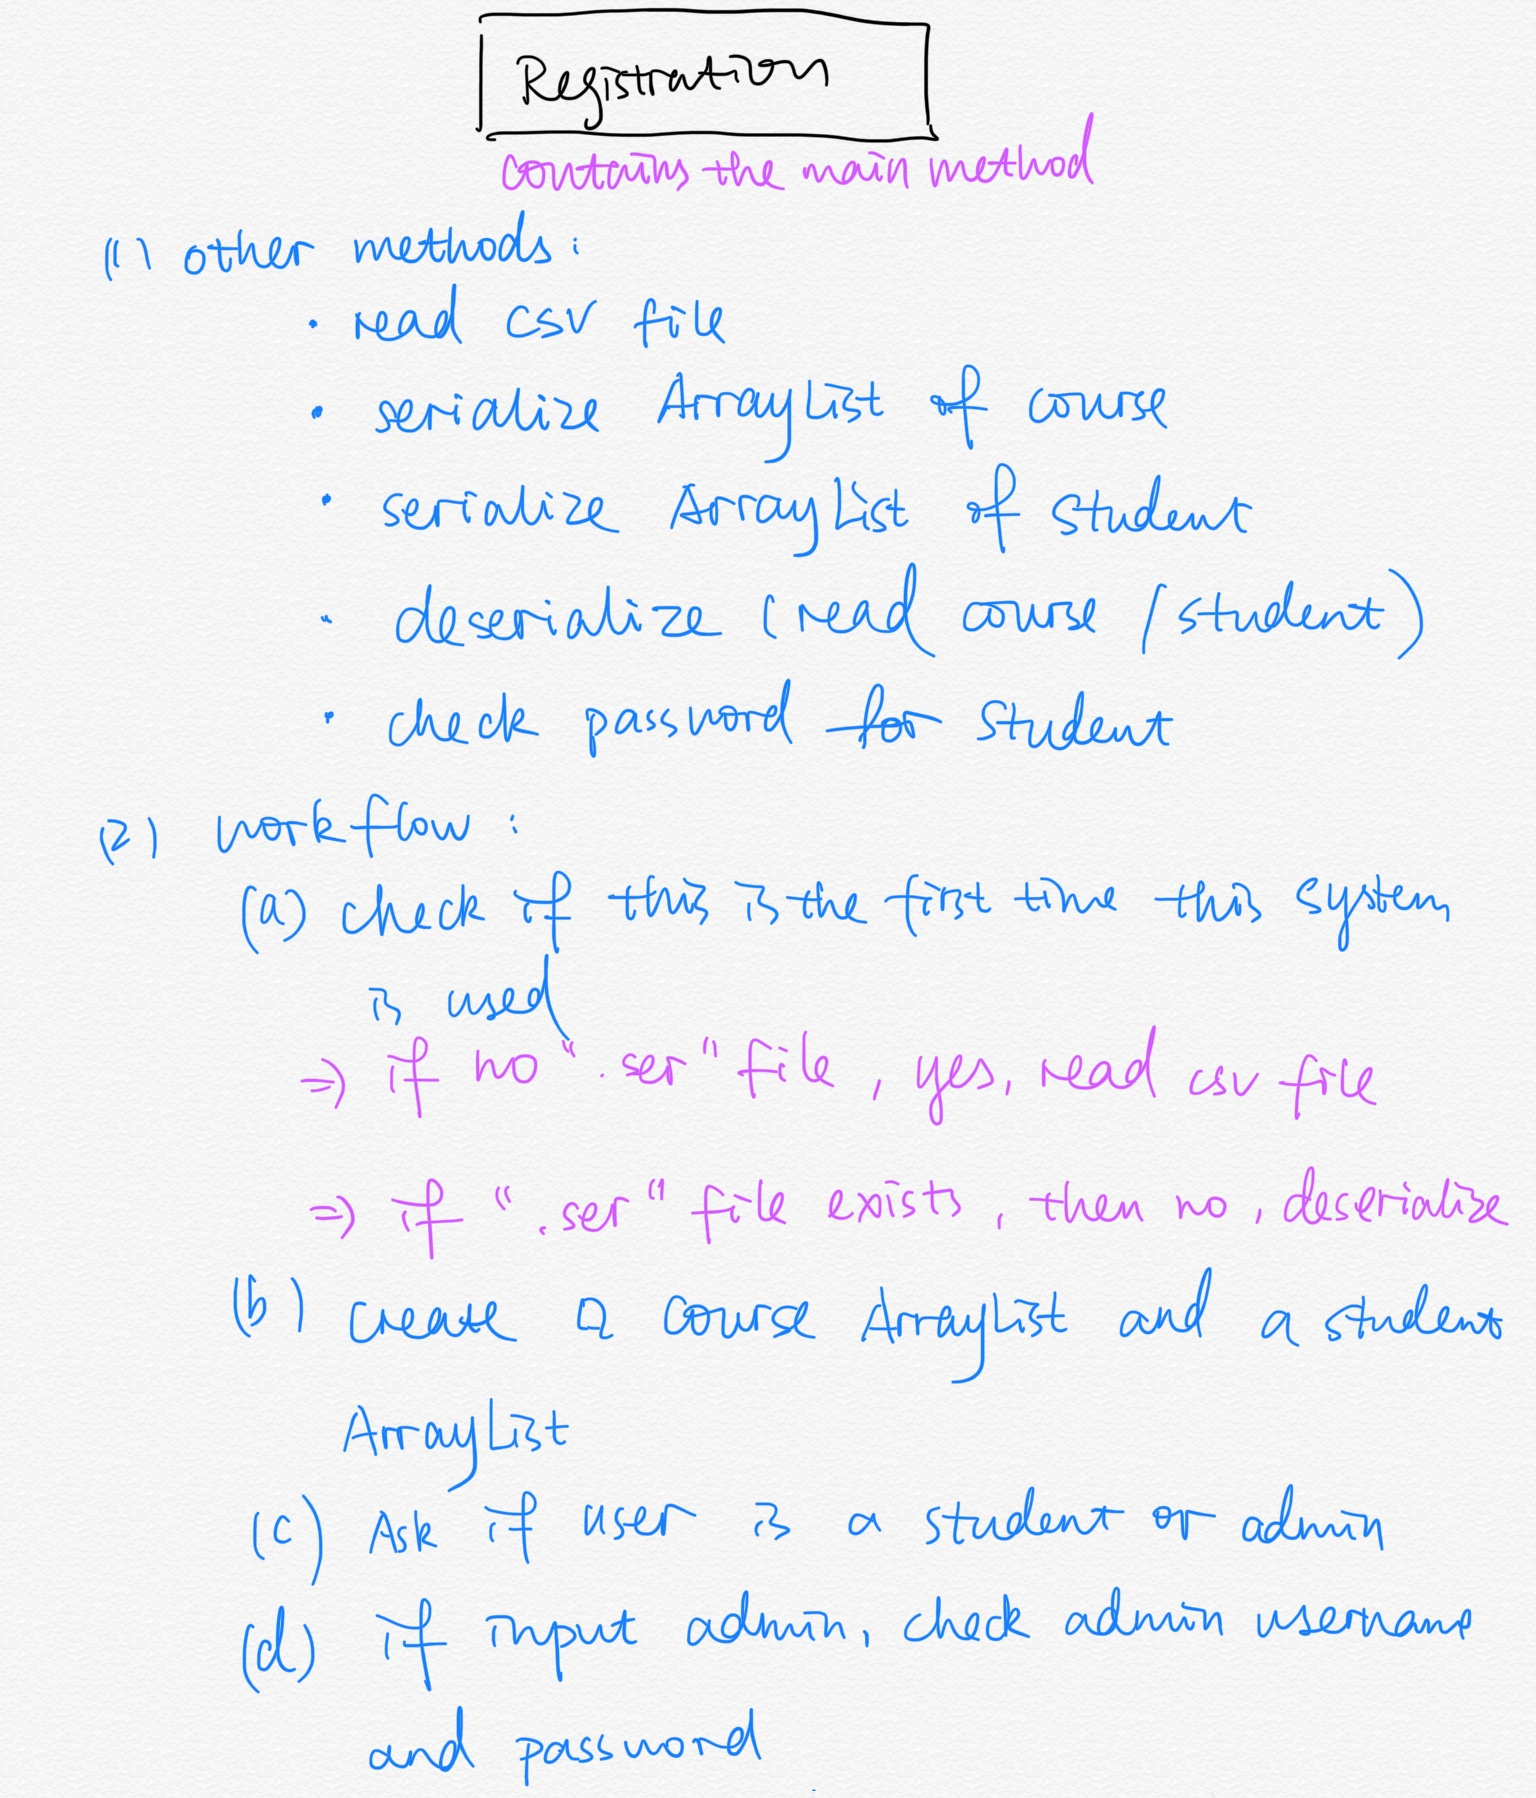 Registration
contains the main method
(1) other methods:
· read csv file
· serialize ArrayList of course
· serialize ArrayList of student
· deserialize (read course / student)
· check password for student
(2) workflow:
(a) check if this is the first time this system
is used
⇒ if no ".ser" file, yes, read csv file
⇒ if ".ser" file exists, then no, deserialize
(b) create a course ArrayList and a student
ArrayList
(c) Ask if user is a student or admin
(d) if input admin, check admin username
and password